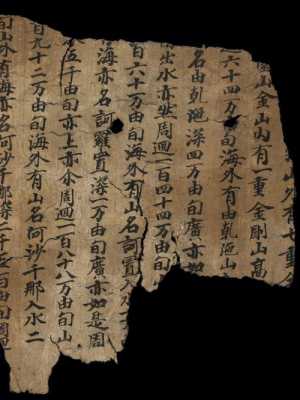 山外有七重金
山金山内有一重金剛山高
六十四万由旬海外有由乾陁山
名由乾陁深四万由旬廣亦如
出水亦然周迴一百四十四万由旬
百六十万由旬海外有山名訶置入水
海亦名訶羅置深一万由旬廣亦如是周
五千由旬亦上亦尒周迴一百八十八万由旬山
百九十二万由旬海外有山名阿沙千那入水二
山外有海亦名阿沙千那深二千五百由旬周